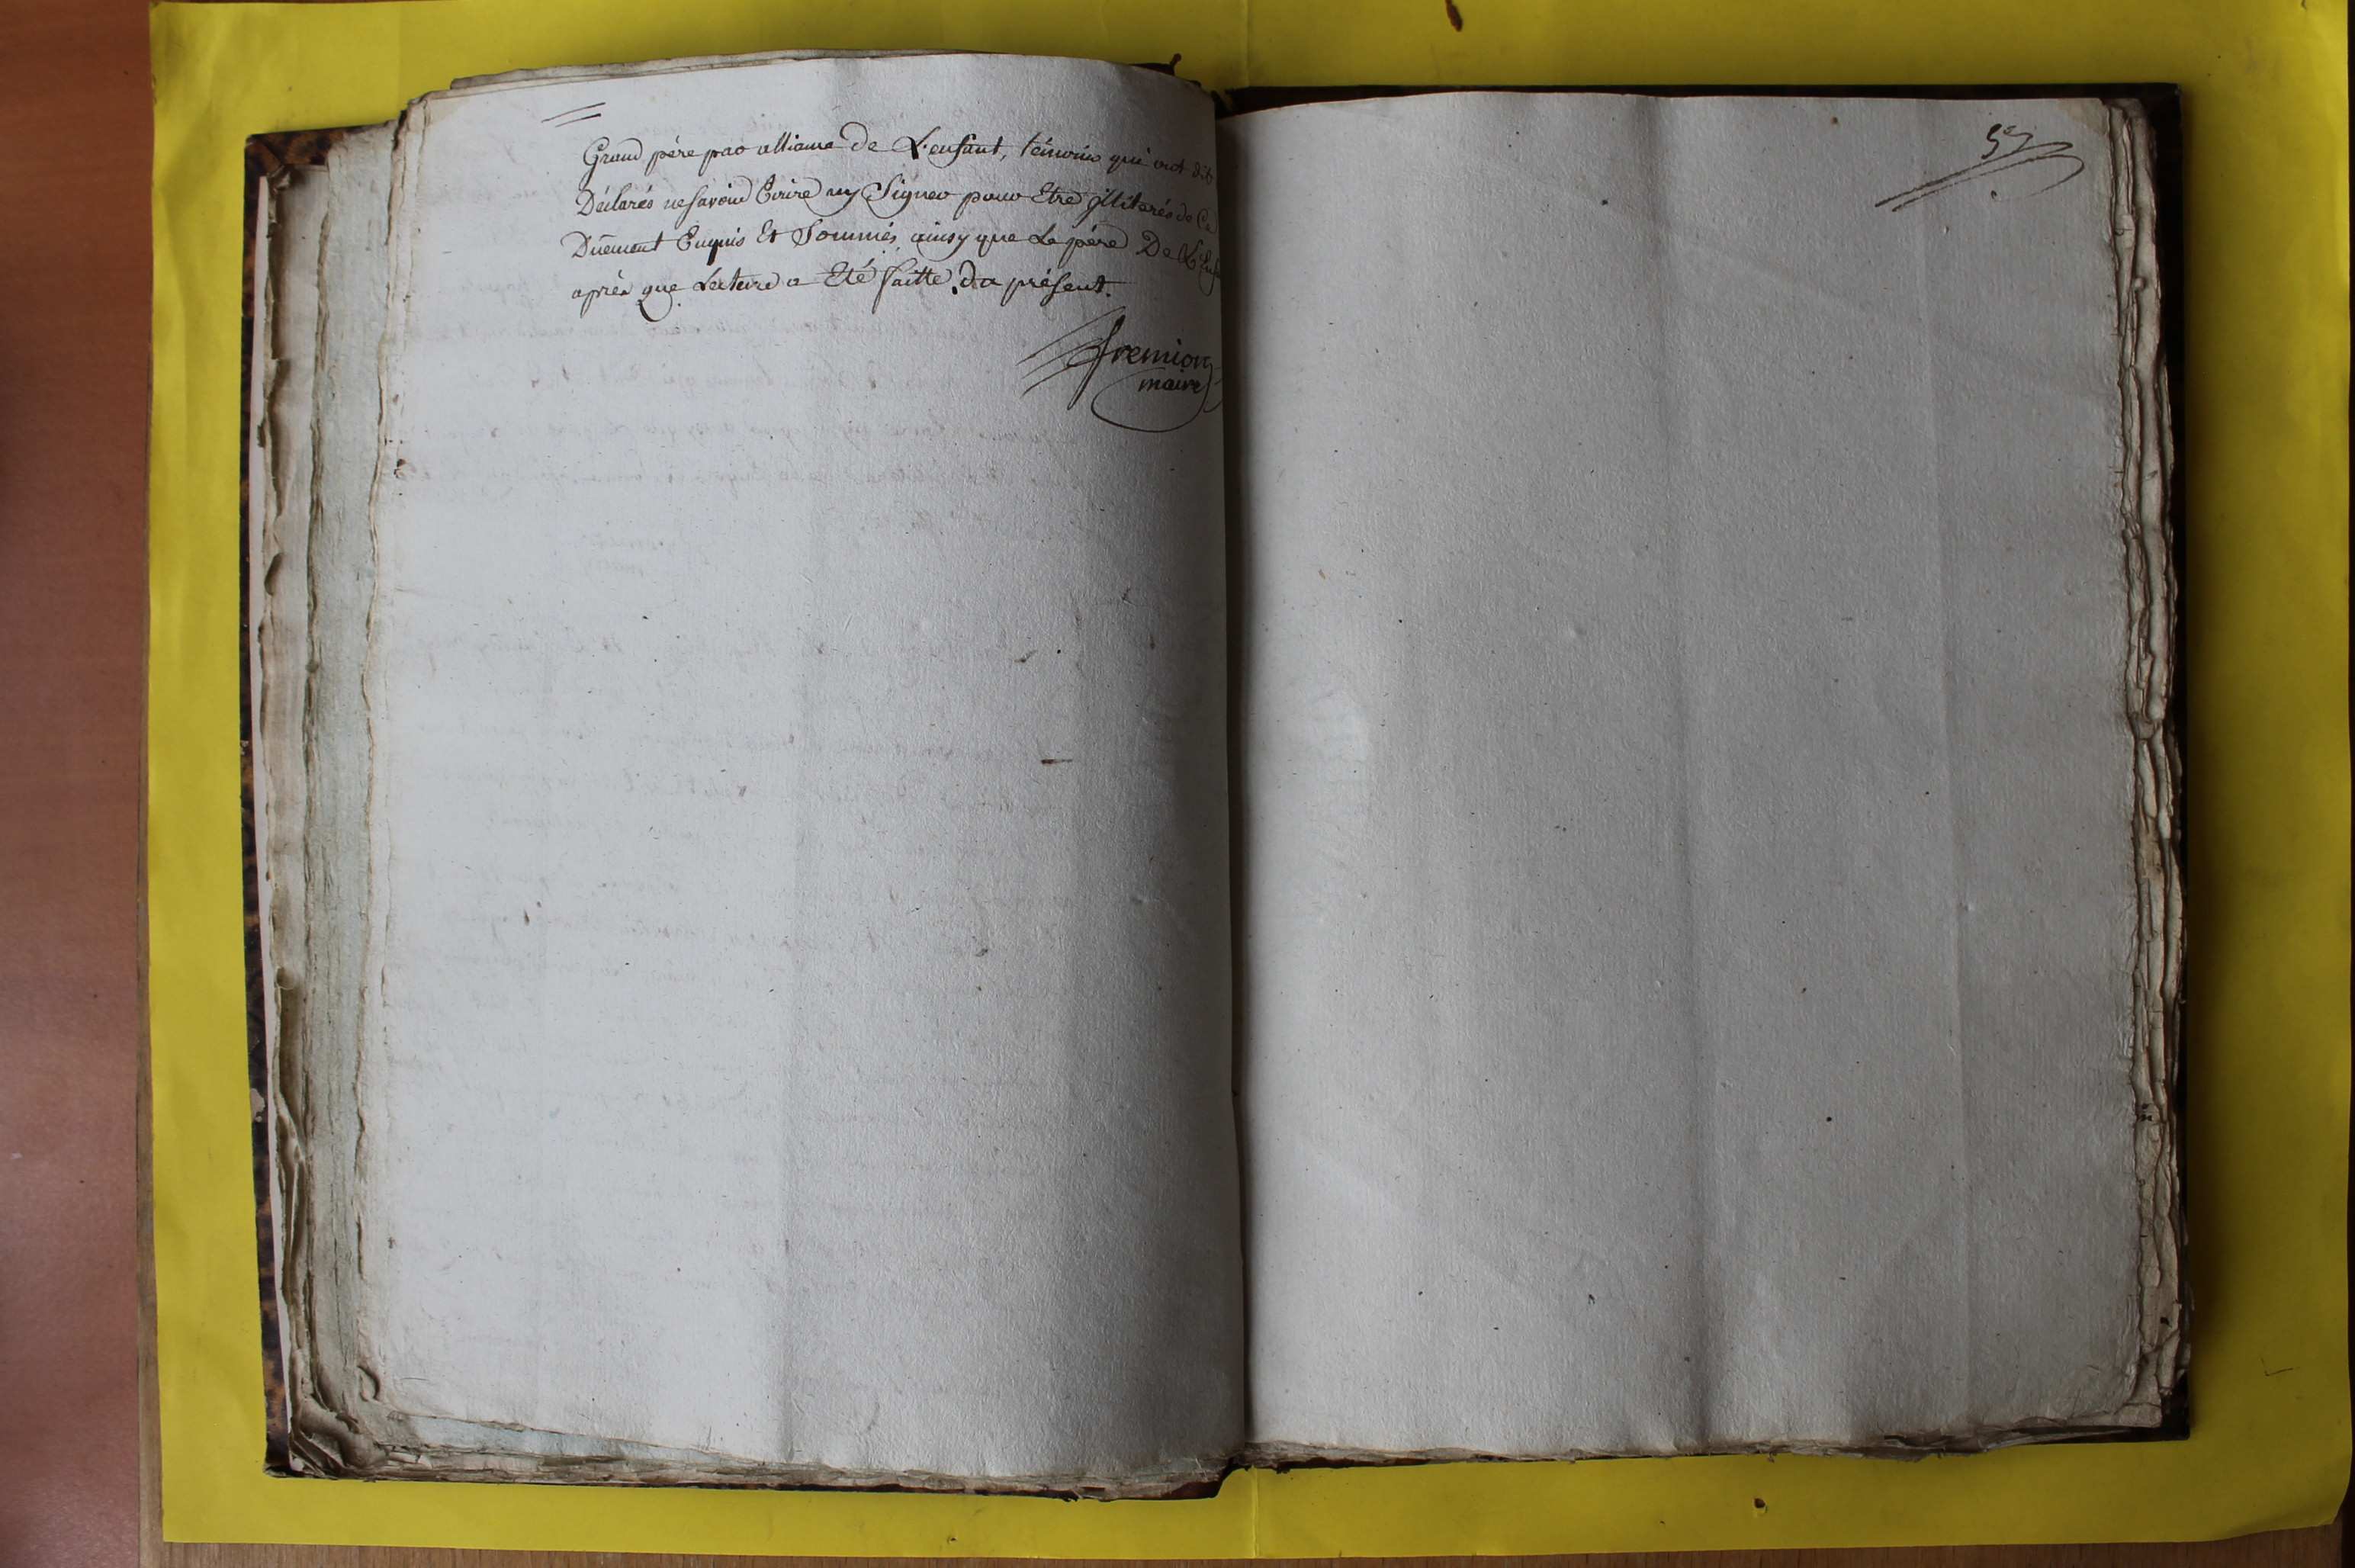 Grand père par alliance de L'enfant, témoins qui ont dit
Déclarés ne savoir Ecrire ny Signer pour Etre illitarés de Ce
Duëment Enquis Et Sommés, ainsy que Le père De L'Enf
après que Lecture a Eté faitte du présent.
fremion
maire